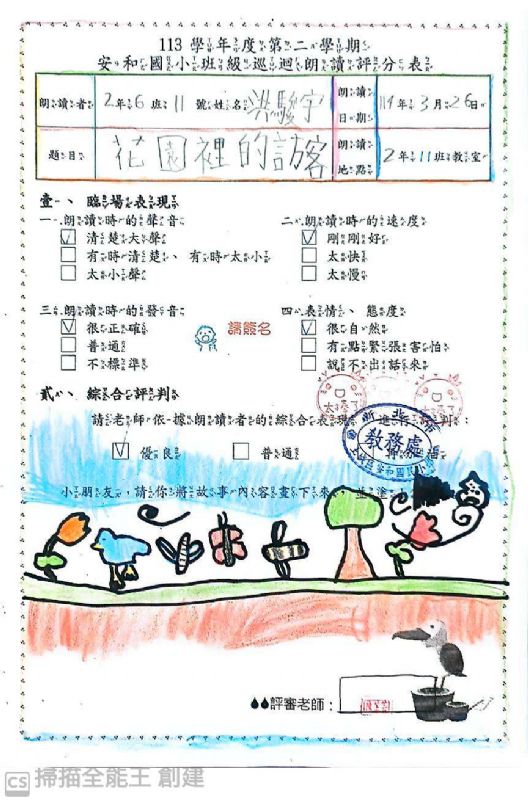 113 學年度第二學期
安和國小班級巡迴朗讀評分表
朗讀者 2年6班11號姓名 洪駿宇 朗讀日期 114年3月26日
題目 花園裡的訪客 朗讀地點 2年11班教室
壹、臨場表現
一、朗讀時的聲音 二、朗讀時的速度
☑清楚大聲 ☑剛剛好
□有時清楚、有時太小 □太快
□太小聲 □太慢
三、朗讀時的發音 四、表情、態度
☑很正確 ☑很自然
□普通 □有點緊張害怕
□不標準 □說不出話來
請簽名
貳、綜合評判
請老師依據朗讀者的綜合表現進行評判:
教務處
☑優良 □普通
小朋友,請你將故事內容畫下來,並塗
評審老師:
CS 掃描全能王 創建